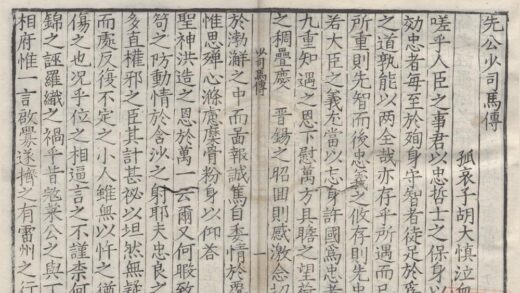 先公少司馬傳
孤哀子胡大慎泣血
嗟乎人臣之事君以忠哲士之保身以
効忠者每至於殉身守智者徒足於爲
之道孰能以两全哉亦存乎所遇而已
所重則先智而後忠義之攸存則先
若大臣之義尤當以忘身許國爲忠者
九重知遇之恩下慰萬方具瞻之望
之稠疊慶 晋錫之昭回則感激念切
少司馬傳 一
於渤澥之中而啚報誠篤自委情於覆
惟思殫心滌慮糜骨粉身以仰荅
聖神洪造之恩於萬一云爾又何暇致
笱之防動情於含沙之射耶夫忠良之
多直權邪之臣其計甚祕以坦然無疑
而處反復不定之小人雖無以忤之
傷之也况乎位之相逼言之不謹柰何
錦之誣羅織之禍乎昔冦萊公之與丁
相府惟一言啟釁遂擠之有雷州之行